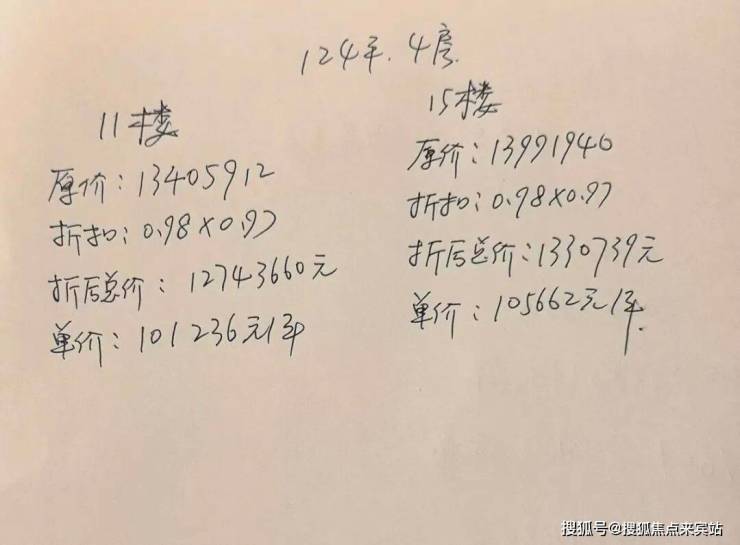 124平.4房.
11楼
原价：13405912
折扣：0.98×0.97
折后总价：12743660元
单价：101236元/平
15楼
原价：13991940
折扣：0.98×0.97
折后总价：1330739元
单价：105662元/平.
搜狐号@搜狐焦点来宾站